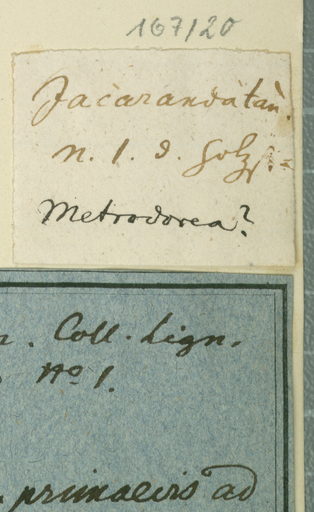 167/20
Jacarandatan.
n. 1. d. Holzs.=
Metrodorea?
Coll. Lign.
No 1.
primaevis ad